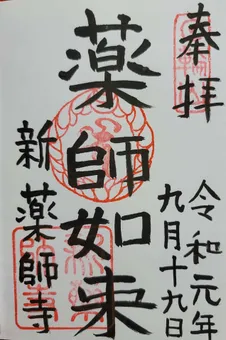 奉拝
令和元年
九月十九日
薬師如来
新薬師寺